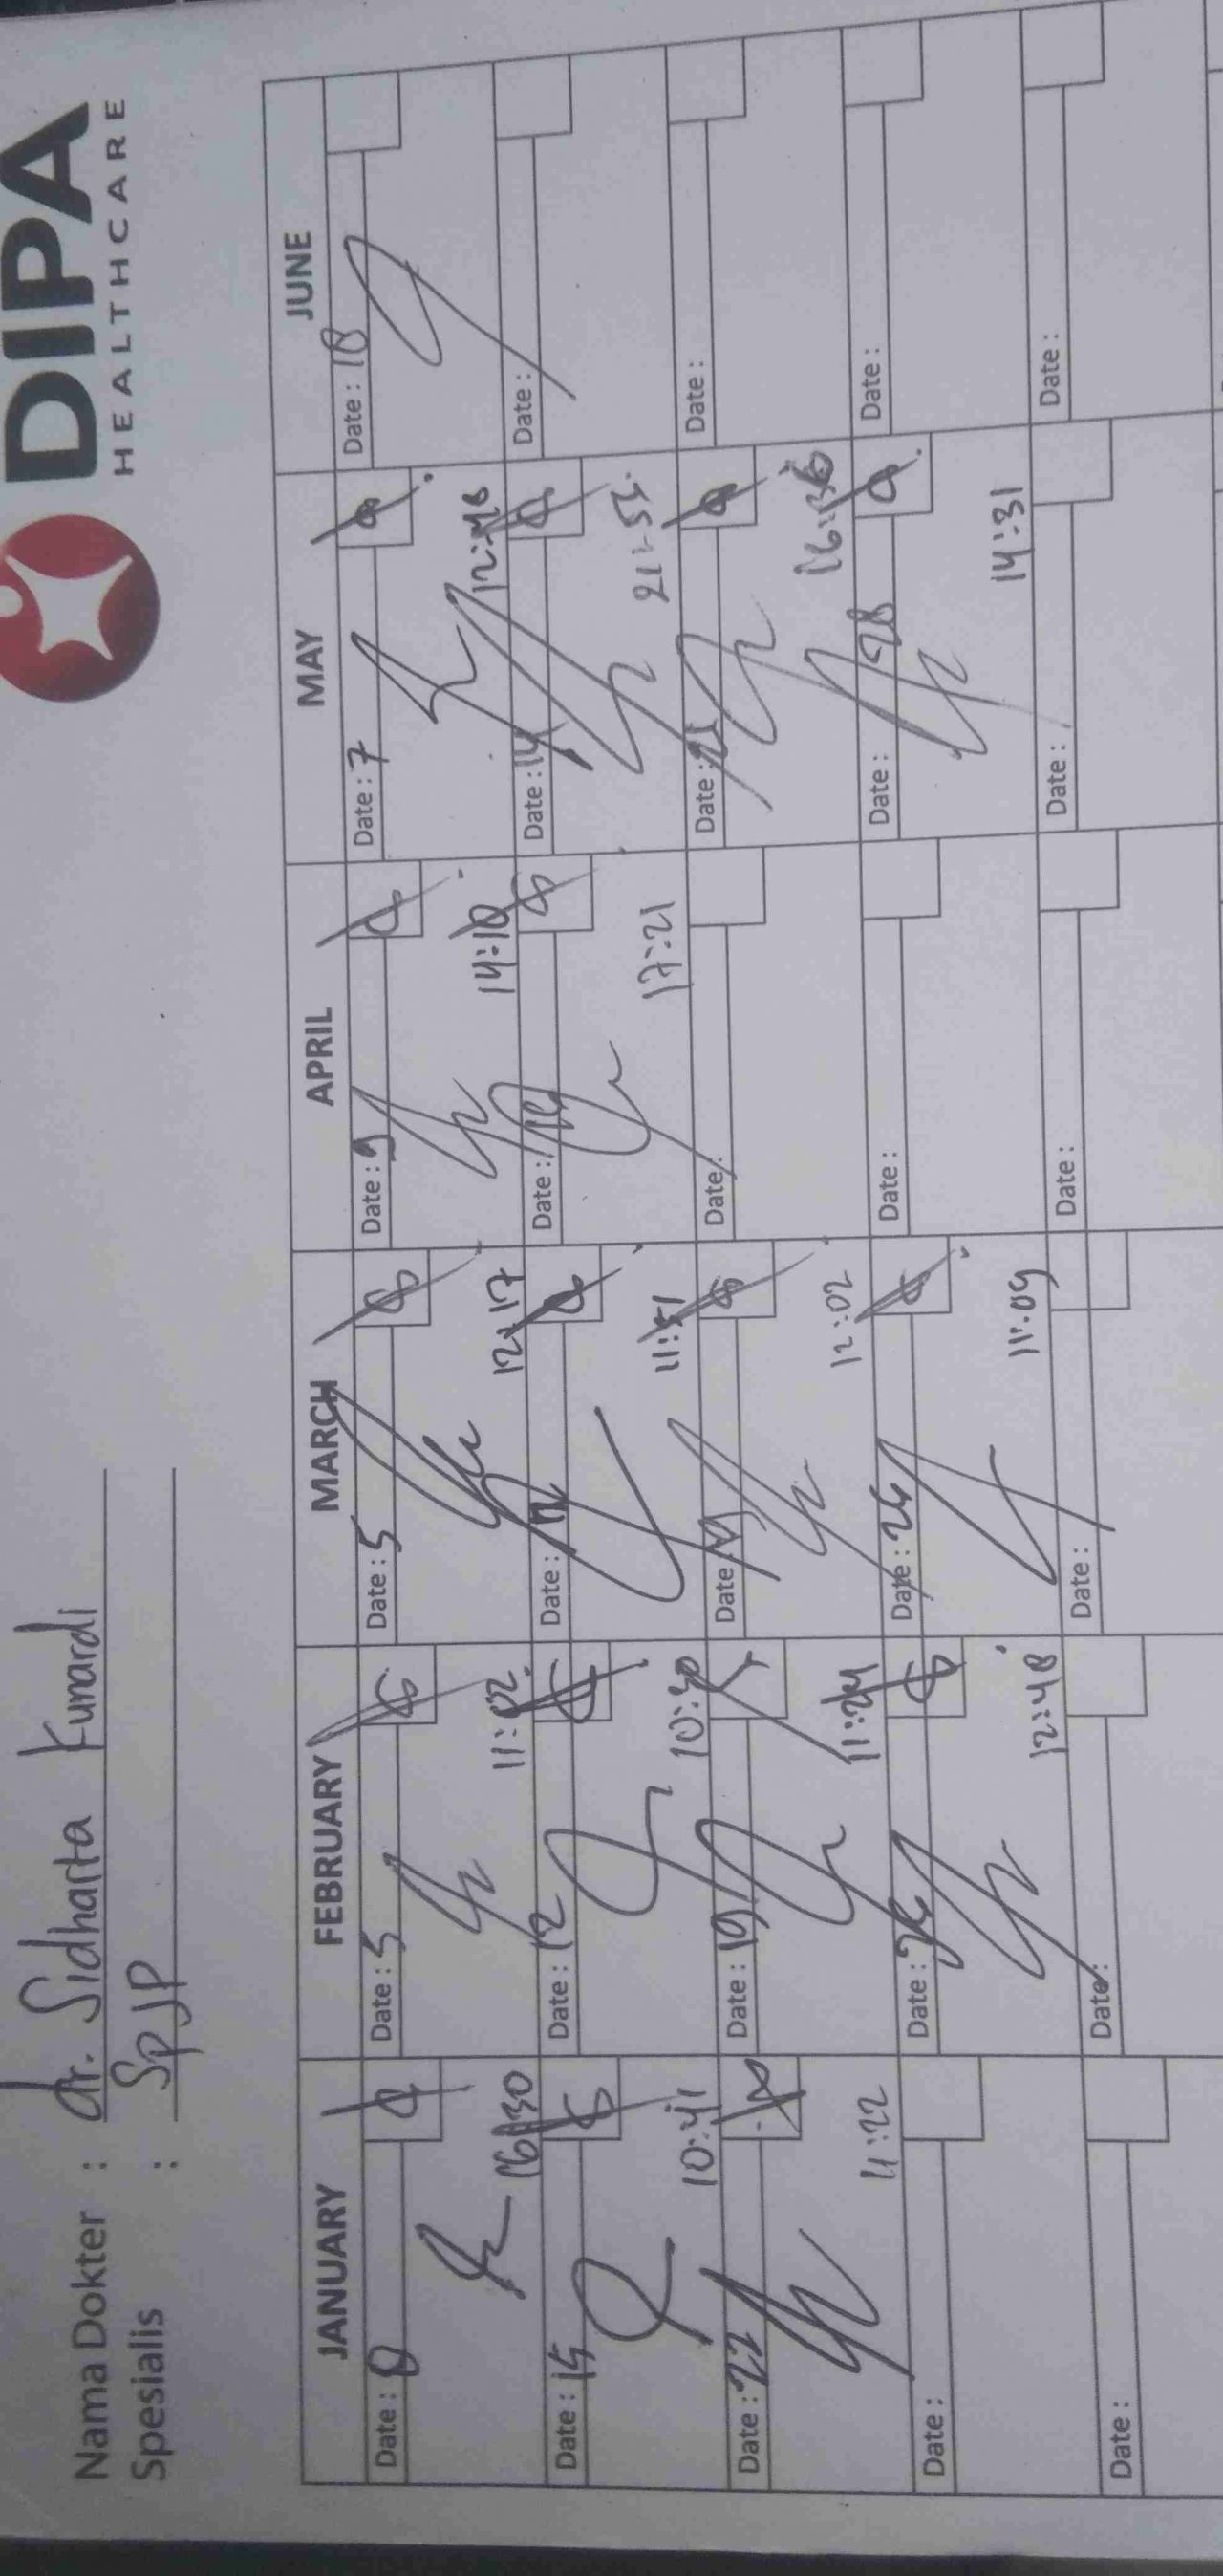 DIPA
HEALTHCARE
Nama Dokter : dr. Sidharta Kunardi
Spesialis : SpJP
JANUARY FEBRUARY MARCH APRIL MAY JUNE
Date : 8 Date : 5 Date : 5 Date : 9 Date : 7 Date : 18
16:30 11:02 12:17 14:10 12:48
Date : 15 Date : 12 Date : 12 Date : Date : 14 Date :
10:41 10:30 11:51 17:21 21:53
Date : 22 Date : 19 Date : 19 Date : Date : 21 Date :
11:22 11:24 12:02 16:36
Date : Date : 26 Date : 26 Date : Date : 28 Date :
12:48 11:09 14:31
Date : Date : Date : Date : Date : Date :